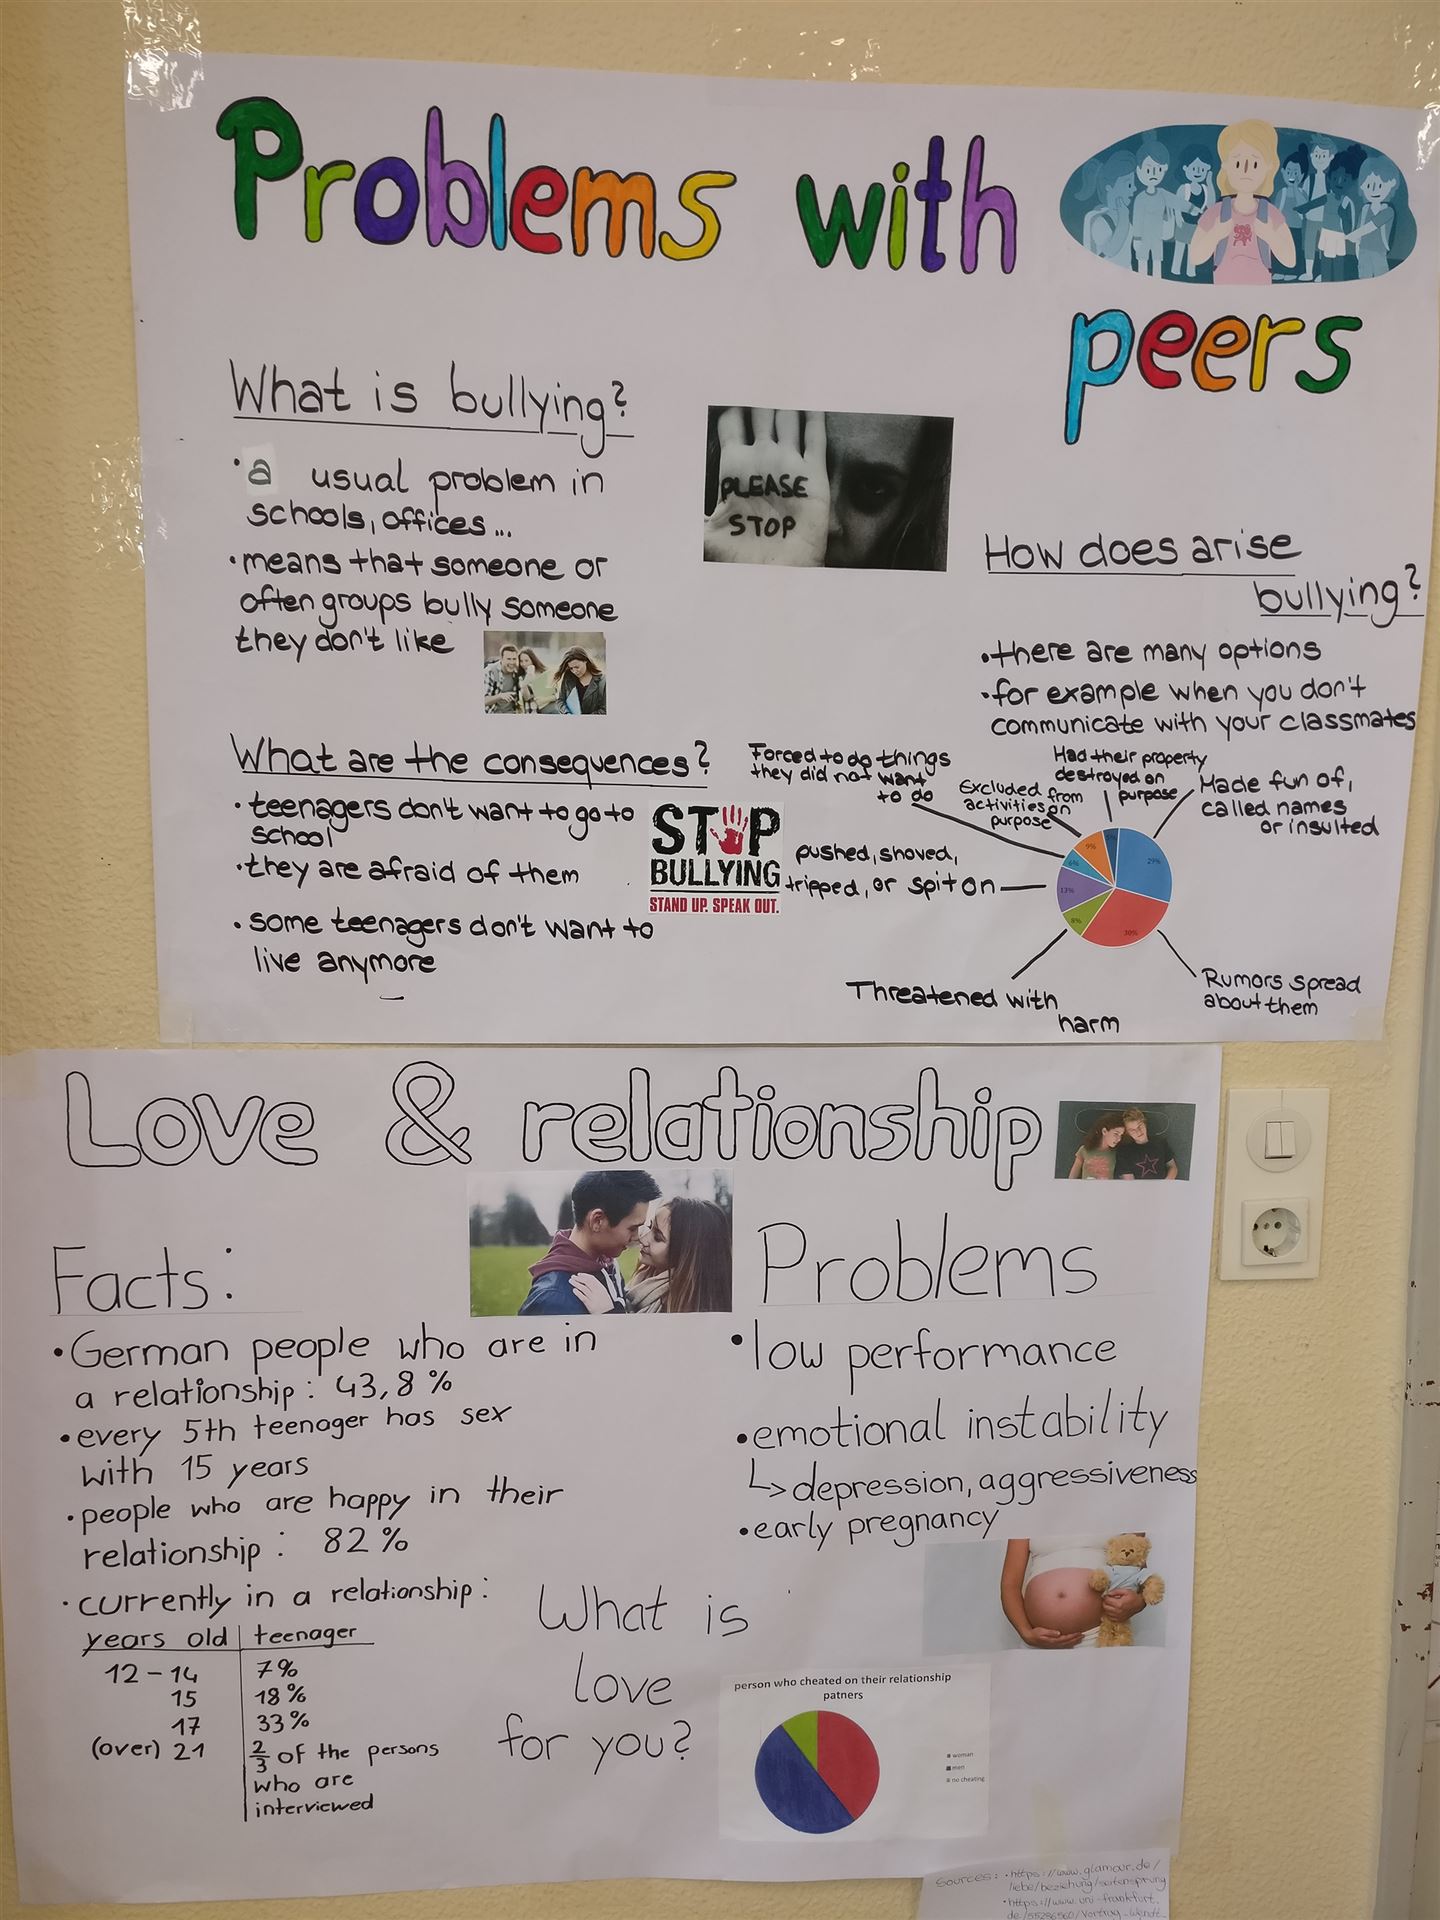 Problems with
peers
What is bullying?
• a usual problem in
schools, offices...
• means that someone or
often groups bully someone
they don't like
PLEASE
STOP
How does arise
bullying?
• there are many options
• for example when you don't
communicate with your classmates
What are the consequences?
• teenagers don't want to go to
school
• they are afraid of them
• some teenagers don't want to
live anymore
STOP
BULLYING
STAND UP. SPEAK OUT.
Forced to do things
they did not want
to do
Excluded from
activities on
purpose
Had their property
destroyed on
purpose
Made fun of,
called names
or insulted
pushed, shoved,
tripped, or spit on
Threatened with
harm
Rumors spread
about them
9%
29%
6%
13%
8%
30%
Love & relationship
Facts:
• German people who are in
a relationship: 43,8 %
• every 5th teenager has sex
with 15 years
• people who are happy in their
relationship: 82 %
• currently in a relationship:
years old teenager
12 – 14 7%
15 18%
17 33%
(over) 21 2/3 of the persons
who are
interviewed
Problems
• low performance
• emotional instability
↳ depression, aggressiveness
• early pregnancy
What is
love
for you?
person who cheated on their relationship
patners
woman
men
no cheating
Sources: • https://www.glamour.de/
liebe/beziehung/seitensprung
• https://www.uni-frankfurt.